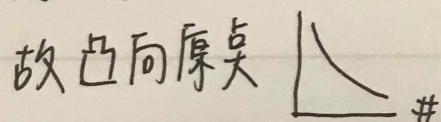 故凸向原点 #